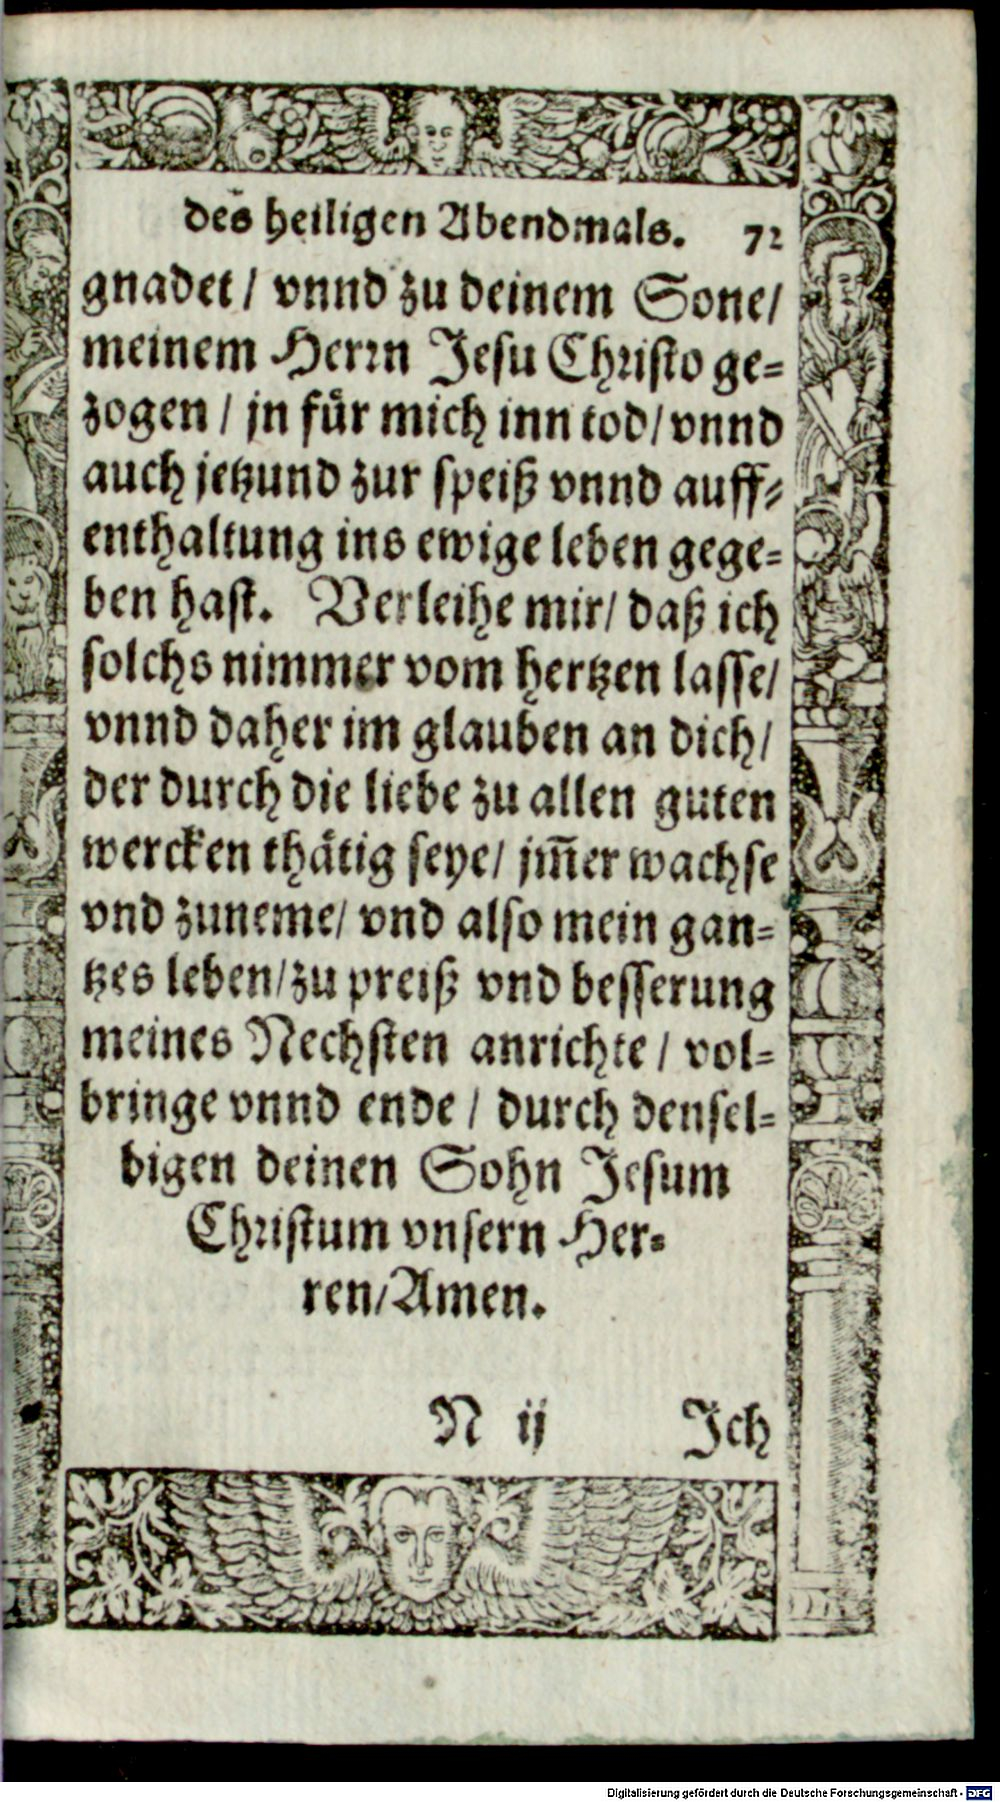 des heiligen Abendmals. 72
gnadet / vnnd zu deinem Sone /
meinem Herrn Jesu Christo ge=
zogen / jn für mich inn tod / vnnd
auch jetzund zur speiß vnnd auff=
enthaltung ins ewige leben gege=
ben hast. Verleihe mir / daß ich
solchs nimmer vom hertzen lasse /
vnnd daher im glauben an dich /
der durch die liebe zu allen guten
wercken thätig seye / jm̃er wachse
vnd zuneme / vnd also mein gan=
tzes leben / zu preiß vnd besserung
meines Nechsten anrichte / vol=
bringe vnnd ende / durch densel=
bigen deinen Sohn Jesum
Christum vnsern Her=
ren / Amen.
N ij Ich
Digitalisierung gefördert durch die Deutsche Forschungsgemeinschaft - DFG